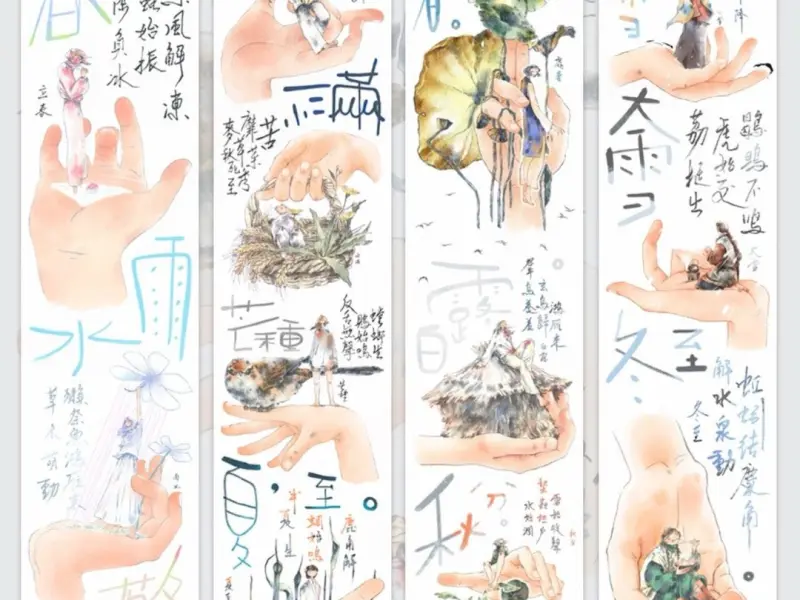 春
東風解凍
蟄蟲始振
魚負冰
立春
雨水
獺祭魚
草木萌動
雨水
小滿
苦
靡草死
麥秋至
芒種
螳螂生
鵙始鳴
反舌無聲
芒種
夏至
鹿角解
蜩始鳴
半夏生
夏至
白露
鴻雁來
玄鳥歸
群鳥養羞
白露
秋分
雷始收聲
水始涸
雪
大雪
鶡鴠不鳴
虎始交
荔挺出
大雪
冬至
蚯蚓結
麋角解
水泉動
冬至